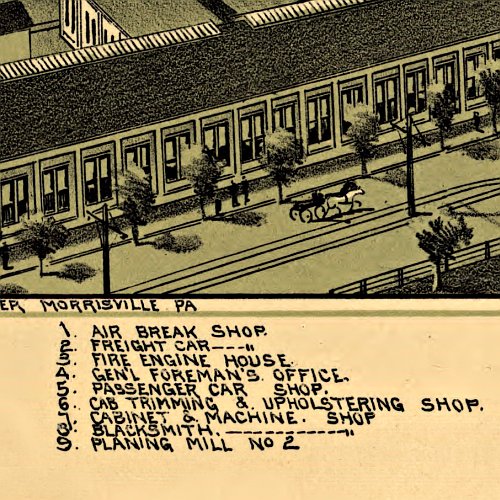 ER, MORRISVILLE PA
1. AIR BREAK SHOP.
2. FREIGHT CAR---"
3. FIRE ENGINE HOUSE.
4. GEN'L FOREMAN'S. OFFICE.
5. PASSENGER CAR SHOP.
6. CAB TRIMMING & UPHOLSTERING SHOP.
7. CABINET & MACHINE. SHOP
8. BLACKSMITH.------------"
9. PLANING MILL NO 2